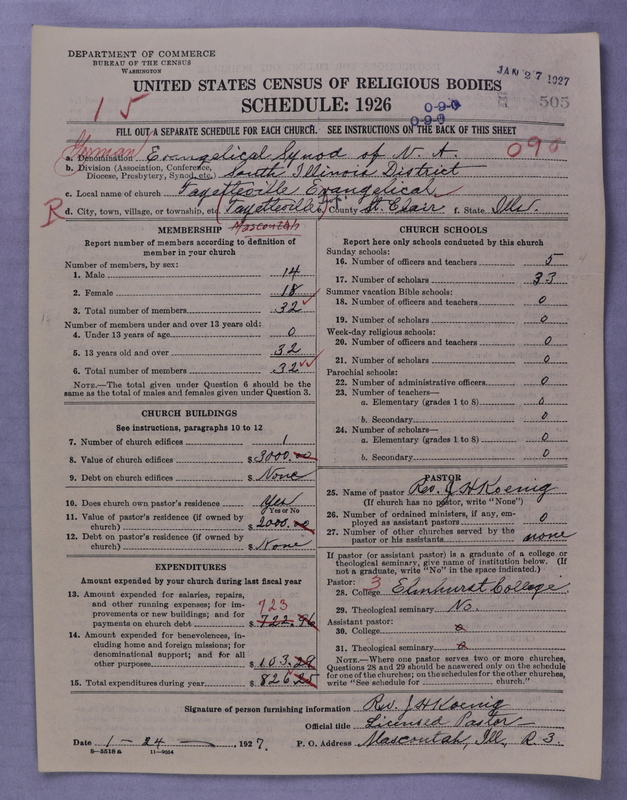 DEPARTMENT OF COMMERCE
BUREAU OF THE CENSUS
WASHINGTON
JAN 27 1927
UNITED STATES CENSUS OF RELIGIOUS BODIES
SCHEDULE: 1926
505
15
0-9-0
0-9-0
FILL OUT A SEPARATE SCHEDULE FOR EACH CHURCH. SEE INSTRUCTIONS ON THE BACK OF THIS SHEET
German
090
a. Denomination Evangelical Synod of N. A.
b. Division (Association, Conference, Diocese, Presbytery, Synod, etc.) South Illinois District
c. Local name of church Fayetteville Evangelical
R
d. City, town, village, or township, etc. (Fayetteville) e. County St. Clair f. State Ills.
Mascoutah
MEMBERSHIP
Report number of members according to definition of
member in your church
Number of members, by sex:
1. Male 14
2. Female 18
3. Total number of members 32
Number of members under and over 13 years old:
4. Under 13 years of age 0
5. 13 years old and over 32
6. Total number of members 32
NOTE.—The total given under Question 6 should be
same as the total of males and females given under Question 3.
CHURCH BUILDINGS
See instructions, paragraphs 10 to 12
7. Number of church edifices 1
8. Value of church edifices $3000.00
9. Debt on church edifices $None
10. Does church own pastor's residence Yes
Yes or No
11. Value of pastor's residence (if owned by
church) $2000.00
12. Debt on pastor's residence (if owned by
church) $None
EXPENDITURES
Amount expended by your church during last fiscal year
13. Amount expended for salaries, repairs,
and other running expenses; for im-
provements or new buildings; and for
payments on church debt $722.96
723
14. Amount expended for benevolences, in-
cluding home and foreign missions; for
denominational support; and for all
other purposes $103.29
15. Total expenditures during year $826.25
CHURCH SCHOOLS
Report here only schools conducted by this church
Sunday schools:
16. Number of officers and teachers 5
17. Number of scholars 33
Summer vacation Bible schools:
18. Number of officers and teachers 0
19. Number of scholars 0
Week-day religious schools:
20. Number of officers and teachers 0
21. Number of scholars 0
Parochial schools:
22. Number of administrative officers 0
23. Number of teachers—
a. Elementary (grades 1 to 8) 0
b. Secondary 0
24. Number of scholars—
a. Elementary (grades 1 to 8) 0
b. Secondary 0
PASTOR
25. Name of pastor Rev. J H Koenig
(If church has no pastor, write "None")
26. Number of ordained ministers, if any, em-
ployed as assistant pastors 0
27. Number of other churches served by the
pastor or his assistants none
If pastor (or assistant pastor) is a graduate of a college or
theological seminary, give name of institution below. (If
not a graduate, write "No" in the space indicated.)
Pastor: 3
28. College Elmhurst College
29. Theological seminary No.
Assistant pastor:
30. College 0
31. Theological seminary 0
NOTE.—Where one pastor serves two or more churches,
Questions 28 and 29 should be answered only on the schedule
for one of the churches; on the schedules for the other churches,
write "See schedule for church."
Signature of person furnishing information Rev. J H Koenig
Official title Licensed Pastor
Date 1 - 24 , 1927. P. O. Address Mascoutah, Ill., R 3.
8-5518a 11-9054